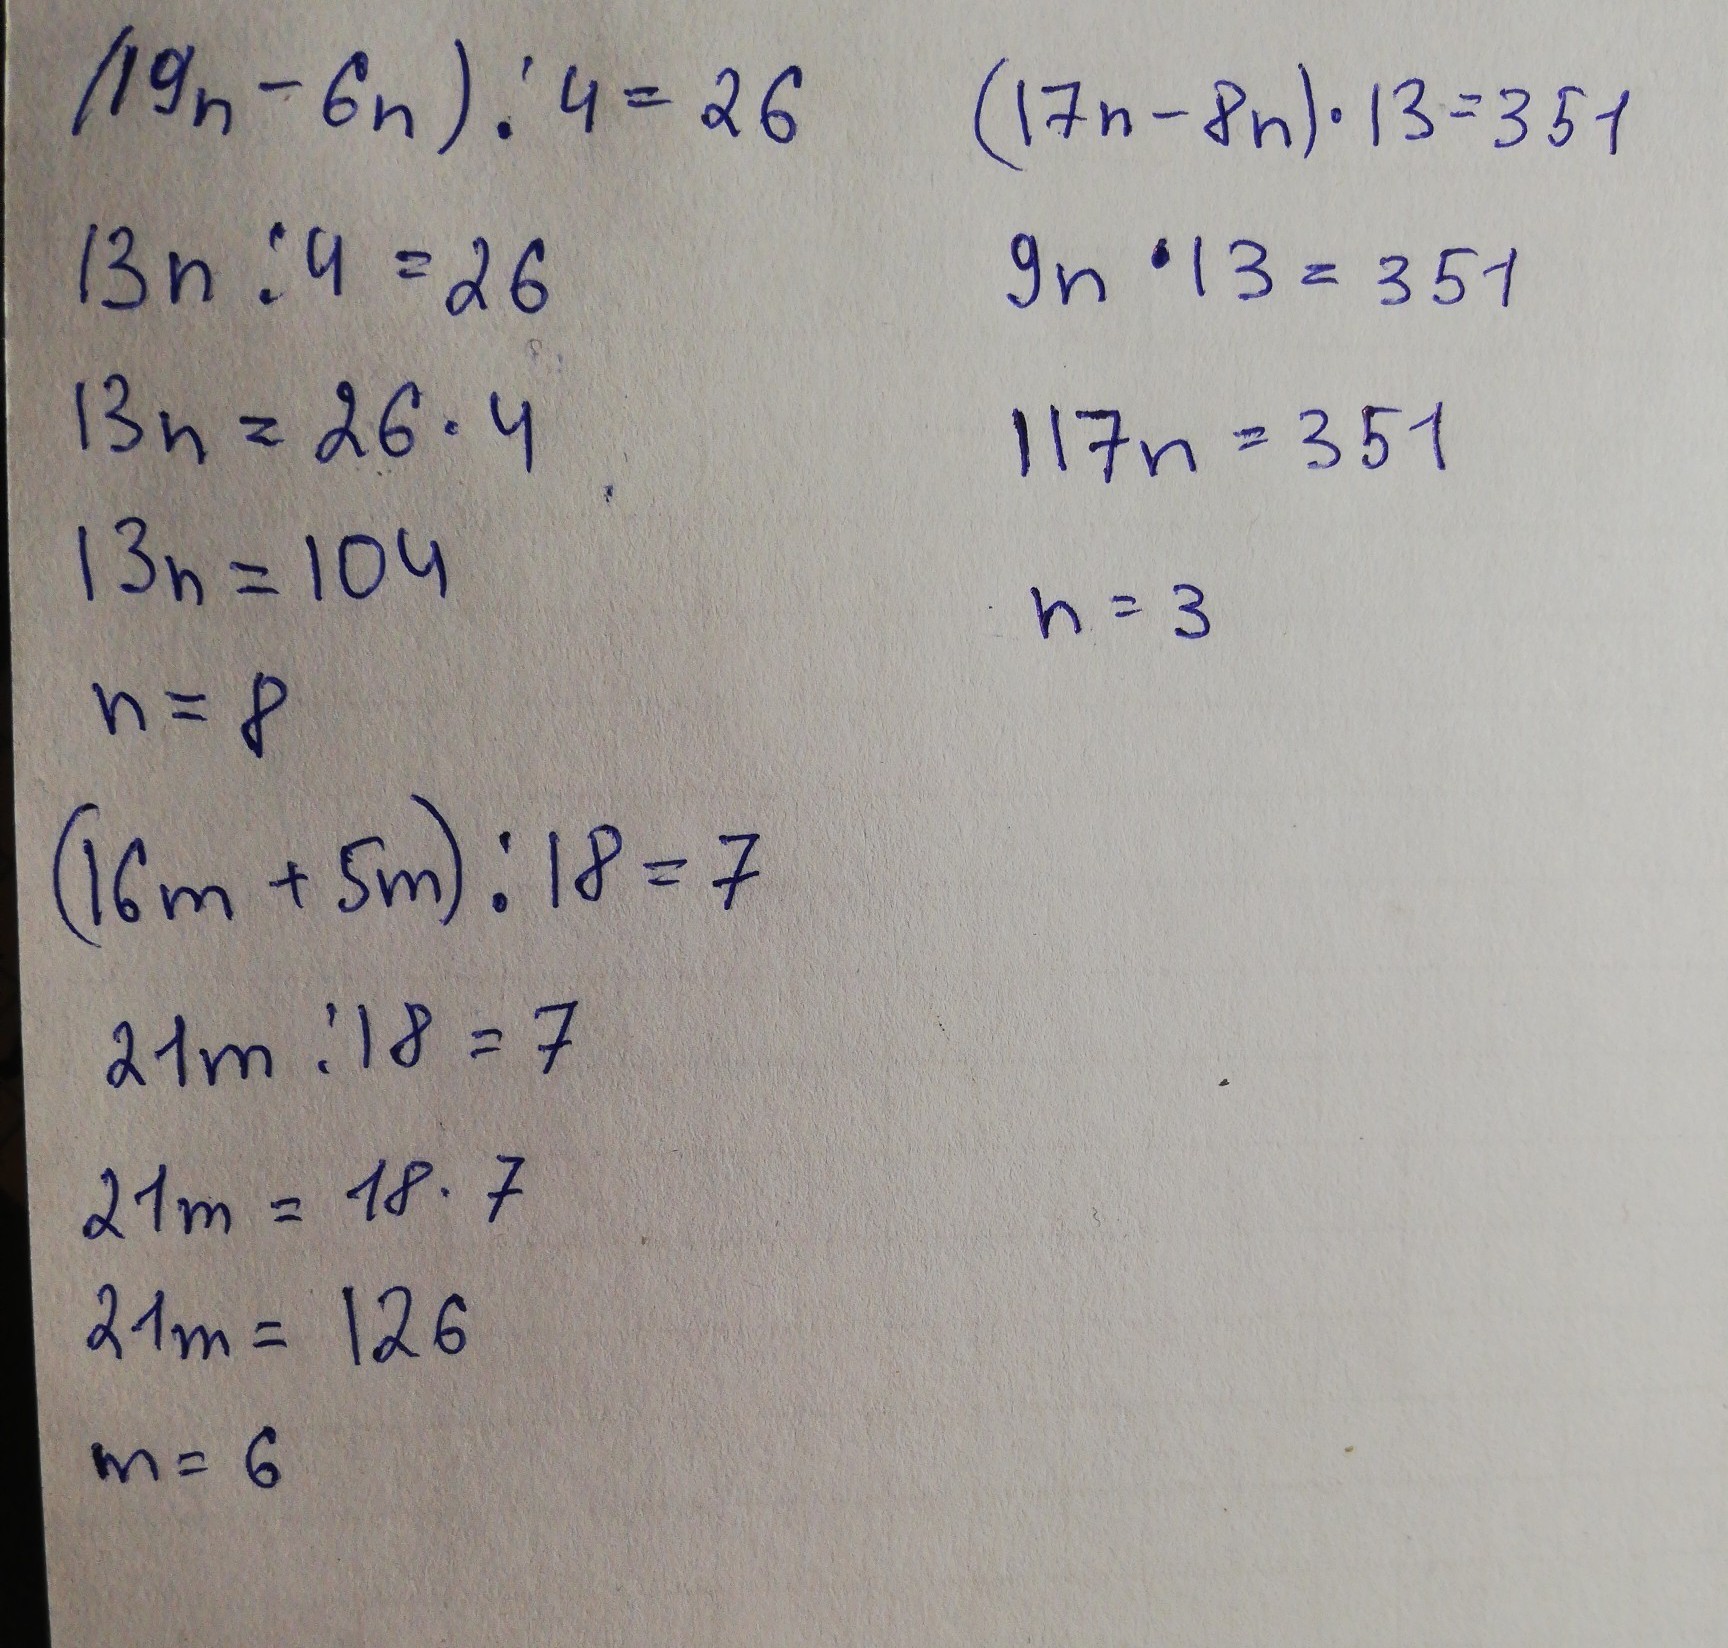 (19n - 6n) : 4 = 26
13n : 4 = 26
13n = 26 · 4
13n = 104
n = 8
(16m + 5m) : 18 = 7
21m : 18 = 7
21m = 18 · 7
21m = 126
m = 6
(17n - 8n) · 13 = 351
9n · 13 = 351
117n = 351
n = 3